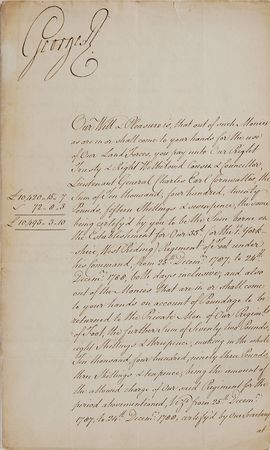 George R
Our Will & Pleasure is, that out of such Monies
as are in or shall come to your hands for the use
of Our Land Forces, you pay unto Our Right
Trusty & Right Welbeloved Cousin & Councellor,
Lieutenant General Charles Earl Cornwallis the
Sum of Ten thousand, four hundred, twenty
Pounds, fifteen Shillings & sevenpence, the same
£10,420..15..7
being certifyed by you to be the Sum borne on
£ 72..8..3
the Establishment for Our 33d. (or the 1st. York
£10,493..3..10
shire, West Riding) Regiment of Foot under
his Command, from 25th. Decemr. 1787, to 24th.
Decemr. 1788, both days inclusive; and also
out of the Monies that are in or shall come
to your hands on account of Poundage to be
returned to the Private Men of Our Regiments
of Foot, the further Sum of Seventy two Pounds
eight Shillings & threepence; making in the whole
Ten thousand, four hundred, ninety three Pounds,
three Shillings & tenpence, being the amount of
the allowed charge of Our said Regiment for the
period abovementioned, to Zt. from 25th. Decemr.
1787, to 24th. Decemr. 1788, certify'd by Our Secretary
at